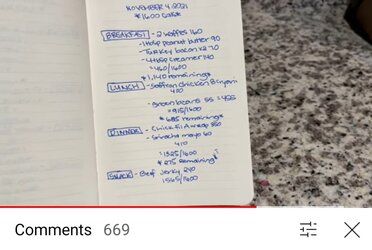 NOVEMBER 4, 2021
*1600 Cals*
BREAKFAST - 2 waffles 160
- 1 tbsp peanut butter 90
- Turkey bacon x2 70
- 4 tbsp creamer 140
= 460/1600
* 1,140 remaining
LUNCH - Saffron Chicken Biryani
400
- Green beans 55 = 455
= 915/1600
* 685 remaining
DINNER - Chick Fil A wrap 350
- Sriracha mayo 60
410
= 1325/1600
* 275 remaining
SNACK - Beef Jerky 240
1565/1600
Comments 669